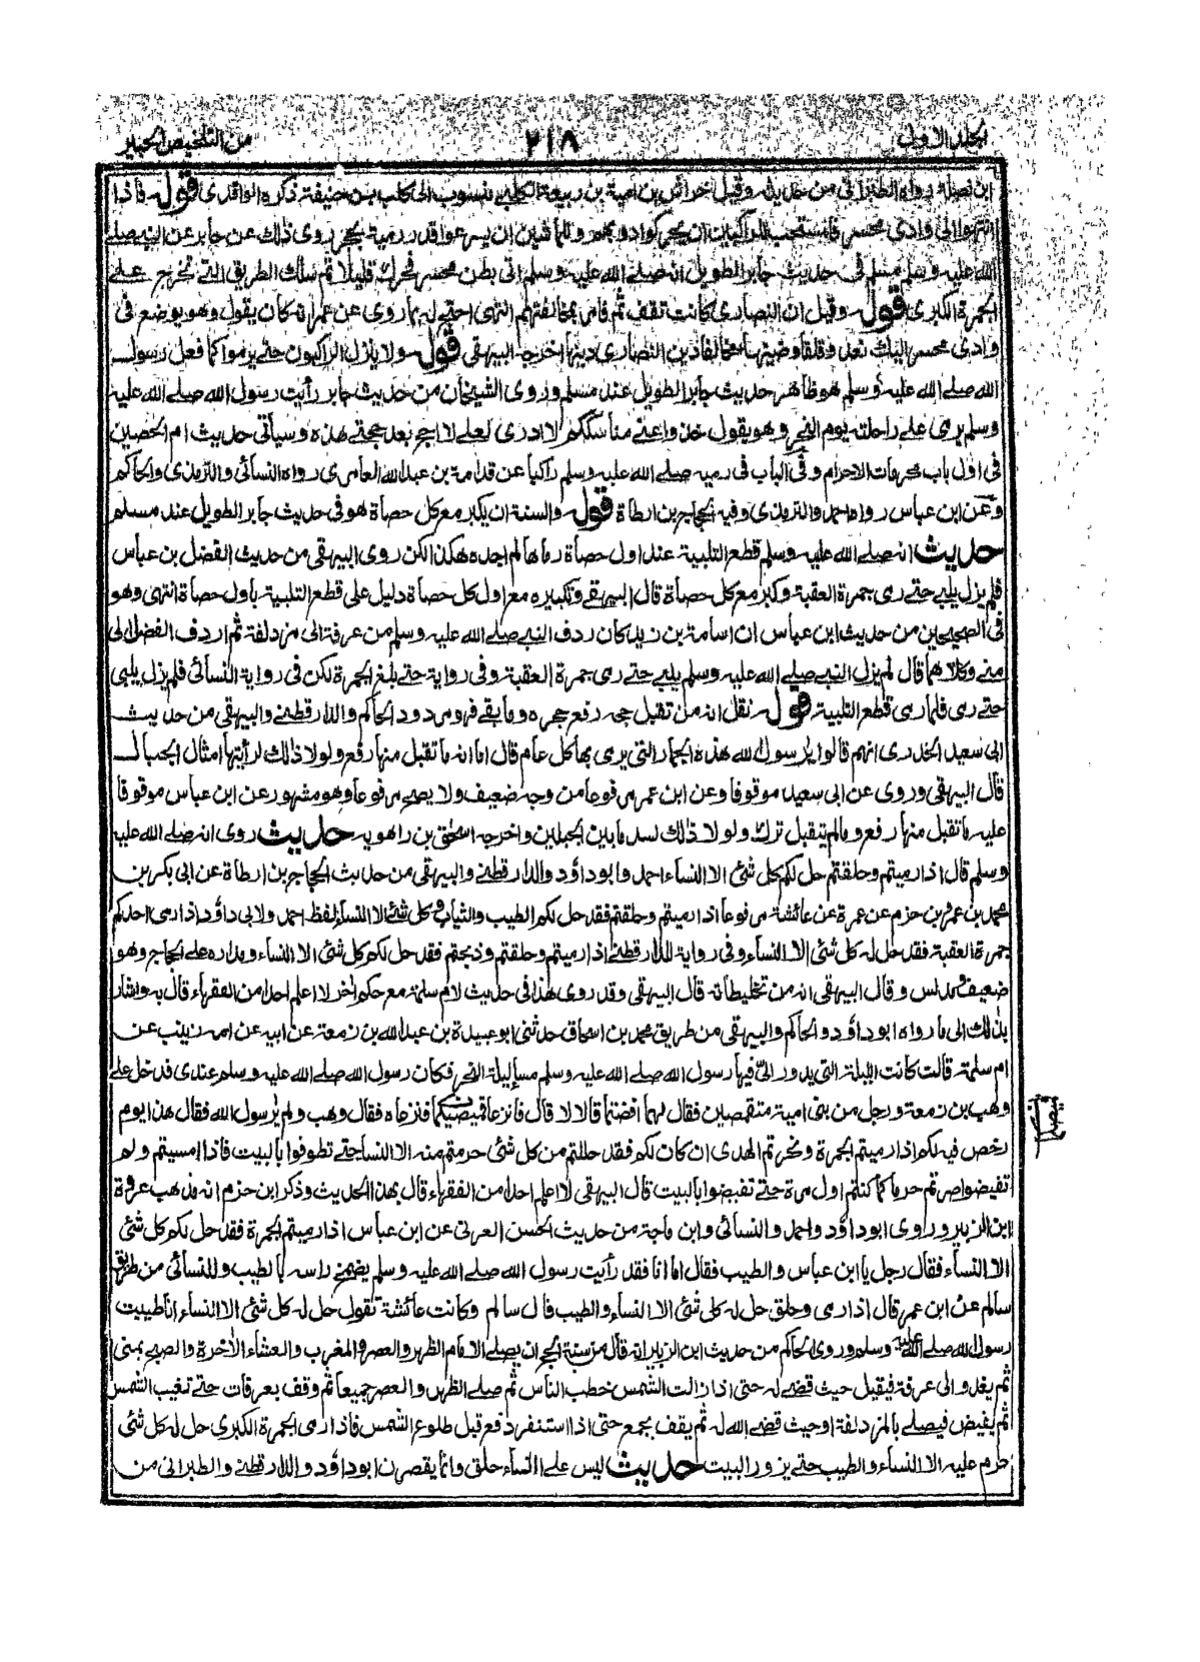 الجلد الاول ٢١٨ من التلخيص الحبير
ابن نضلة رواه الطبراني من حديثه وقيل خراش بن امية بن ربيعة الكليبي منسوب الى كليب بن حنيفة ذكره الواقدى قوله فاذا
انتهوا الى وادى محسر فالمستحب للراكبين ان يحركوا دوابهم وللماشين ان يسرعوا قدر رمية بحجر روى ذلك عن جابر عن النبى صلے
الله عليه وسلم مسلم فى حديث جابر الطويل انه صلے الله عليه وسلم اتى بطن محسر فحرك قليلا ثم سلك الطريق التے تخرج علے
الجمرة الكبرى قوله وقيل ان النصارى كانت تقف ثم فامر بمخالفتهم انتهى احتج له بما روى عن عمر انه كان يقول وهو يوضع فى
وادى محسر اليك تعدو قلقا وضينها مخالفا دين النصارى دينها اخرجه البيهقى قوله ولا ينزل الراكبون حتے يرموا كما فعل رسول
الله صلے الله عليه وسلم هو ظاهر حديث جابر الطويل عند مسلم وروى الشيخان من حديث جابر رأيت رسول الله صلے الله عليه
وسلم يرمى علے راحلته يوم النحر وهو يقول خذوا عنے مناسككم لا ادرى لعلے لا احج بعد حجتے هذه وسيأتى حديث ام الحصين
فى اول باب محرمات الاحرام وفى الباب فى رميه صلے الله عليه وسلم راكبا عن قدامة بن عبد الله العامرى رواه النسائى والترمذى والحاكم
وعن ابن عباس رواه احمد والترمذى وفيه الحجاج بن ارطاة قوله والسنة ان يكبر مع كل حصاة هو فى حديث جابر الطويل عند مسلم
حديث انه صلے الله عليه وسلم قطع التلبية عند اول حصاة رماها لم اجده هكذا لكن روى البيهقى من حديث الفضل بن عباس
فلم يزل يلبے حتے رمى جمرة العقبة وكبر مع كل حصاة قال البيهقے وتكبيره مع اول كل حصاة دليل على قطع التلبية باول حصاة انتهى وهو
فى الصحيحين من حديث ابن عباس ان اسامة بن زيد كان ردف النبے صلے الله عليه وسلم من عرفة الى مزدلفة ثم اردف الفضل الى
منے وكلاهما قال لم يزل النبے صلے الله عليه وسلم يلبے حتے رمى جمرة العقبة وفى رواية حتے بلغ الجمرة لكن فى رواية النسائى فلم يزل يلبى
حتے رمى فلما رمى قطع التلبية قوله نقل انه من تقبل حجه رفع حجره وما بقے فهو مردود الحاكم والدارقطنے والبيهقى من حديث
ابى سعيد الخدرى انهم قالوا يا رسول الله هذه الجمار التى يرمى بها كل عام قال اما انه ما تقبل منها رفع ولولا ذلك لرأيتها امثال الجبال
قال البيهقى وروى عن ابى سعيد موقوفا وعن ابن عمر مرفوعا من وجه ضعيف ولا يصح مرفوعا وهو مشهور عن ابن عباس موقوفا
عليه ما تقبل منها رفع وما لم يتقبل ترك ولولا ذلك لسد ما بين الجبلين واخرجه اسحق بن راهويه حديث روى انه صلے الله عليه
وسلم قال اذا رميتم وحلقتم حل لكم كل شئ الا النساء احمد وابو داؤد والدارقطنے والبيهقى من حديث الحجاج بن ارطاة عن ابى بكر بن
محمد بن عمرو بن حزم عن عمرة عن عائشة مرفوعا اذا رميتم وحلقتم فقد حل لكم الطيب والثياب وكل شئ الا النساء لفظ احمد ولابى داؤد اذا رمى احدكم
جمرة العقبة فقد حل له كل شئ الا النساء وفى رواية للدارقطنے اذا رميتم وحلقتم وذبحتم فقد حل لكم كل شئ الا النساء ومداره علے الحجاج وهو
ضعيف مدلس وقال البيهقى انه من تخليطاته قال البيهقى وقد روى هذا فى حديث لام سلمة مع حكم اخر لا اعلم احدا من الفقهاء قال به واشار
بذلك الى ما رواه ابو داؤد والحاكم والبيهقى من طريق محمد بن اسحاق حدثنى ابو عبيدة بن عبد الله بن زمعة عن ابيه عن امه زينب عن
ام سلمة قالت كانت الليلة التى يدور الىّ فيها رسول الله صلے الله عليه وسلم مساء ليلة النحر فكان رسول الله صلے الله عليه وسلم عندى فدخل علے
وهب بن زمعة ورجل من بنى امية متقمصين فقال لهما افضتما قالا لا قال فانزعا قميصيكما فنزعاه فقال وهب ولم يا رسول الله فقال هذا يوم
رخص فيه لكم اذا رميتم الجمرة ونحرتم الهدى ان كان لكم فقد حللتم من كل شئ حرمتم منه الا النساء حتے تطوفوا بالبيت فاذا امسيتم ولم
تفيضوا صرتم حرما كما كنتم اول مرة حتے تفيضوا بالبيت قال البيهقى لا اعلم احدا من الفقهاء قال بهذا الحديث وذكر ابن حزم انه مذهب عروة
ابن الزبير وروى ابو داؤد واحمد والنسائى وابن ماجة من حديث الحسن العرنى عن ابن عباس اذا رميتم الجمرة فقد حل لكم كل شئ
الا النساء فقال رجل يا ابن عباس والطيب فقال اما انا فقد رأيت رسول الله صلے الله عليه وسلم يضمخ راسه بالطيب وللنسائى من طريق
سالم عن ابن عمر قال اذا رمى وحلق حل له كل شئ الا النساء والطيب قال سالم وكانت عائشة تقول حل له كل شئ الا النساء انا طيبت
رسول الله صلے الله عليه وسلم وروى الحاكم من حديث ابن الزبير انه قال من سنة الحج ان يصلے الامام الظهر والعصر والمغرب والعشاء الآخرة والصبح بمنى
ثم يغدو الى عرفة فيقيل حيث قضے له حتى اذا زالت الشمس خطب الناس ثم صلے الظهر والعصر جميعا ثم وقف بعرفات حتے تغيب الشمس
ثم يفيض فيصلے بالمزدلفة او حيث قضے الله له ثم يقف بجمع حتى اذا استنفر دفع قبل طلوع الشمس فاذا رمى الجمرة الكبرى حل له كل شئ
حرم عليه الا النساء والطيب حتے يزور البيت حديث ليس علے النساء حلق وانما يقصرن ابو داؤد والدارقطنے والطبرانى من